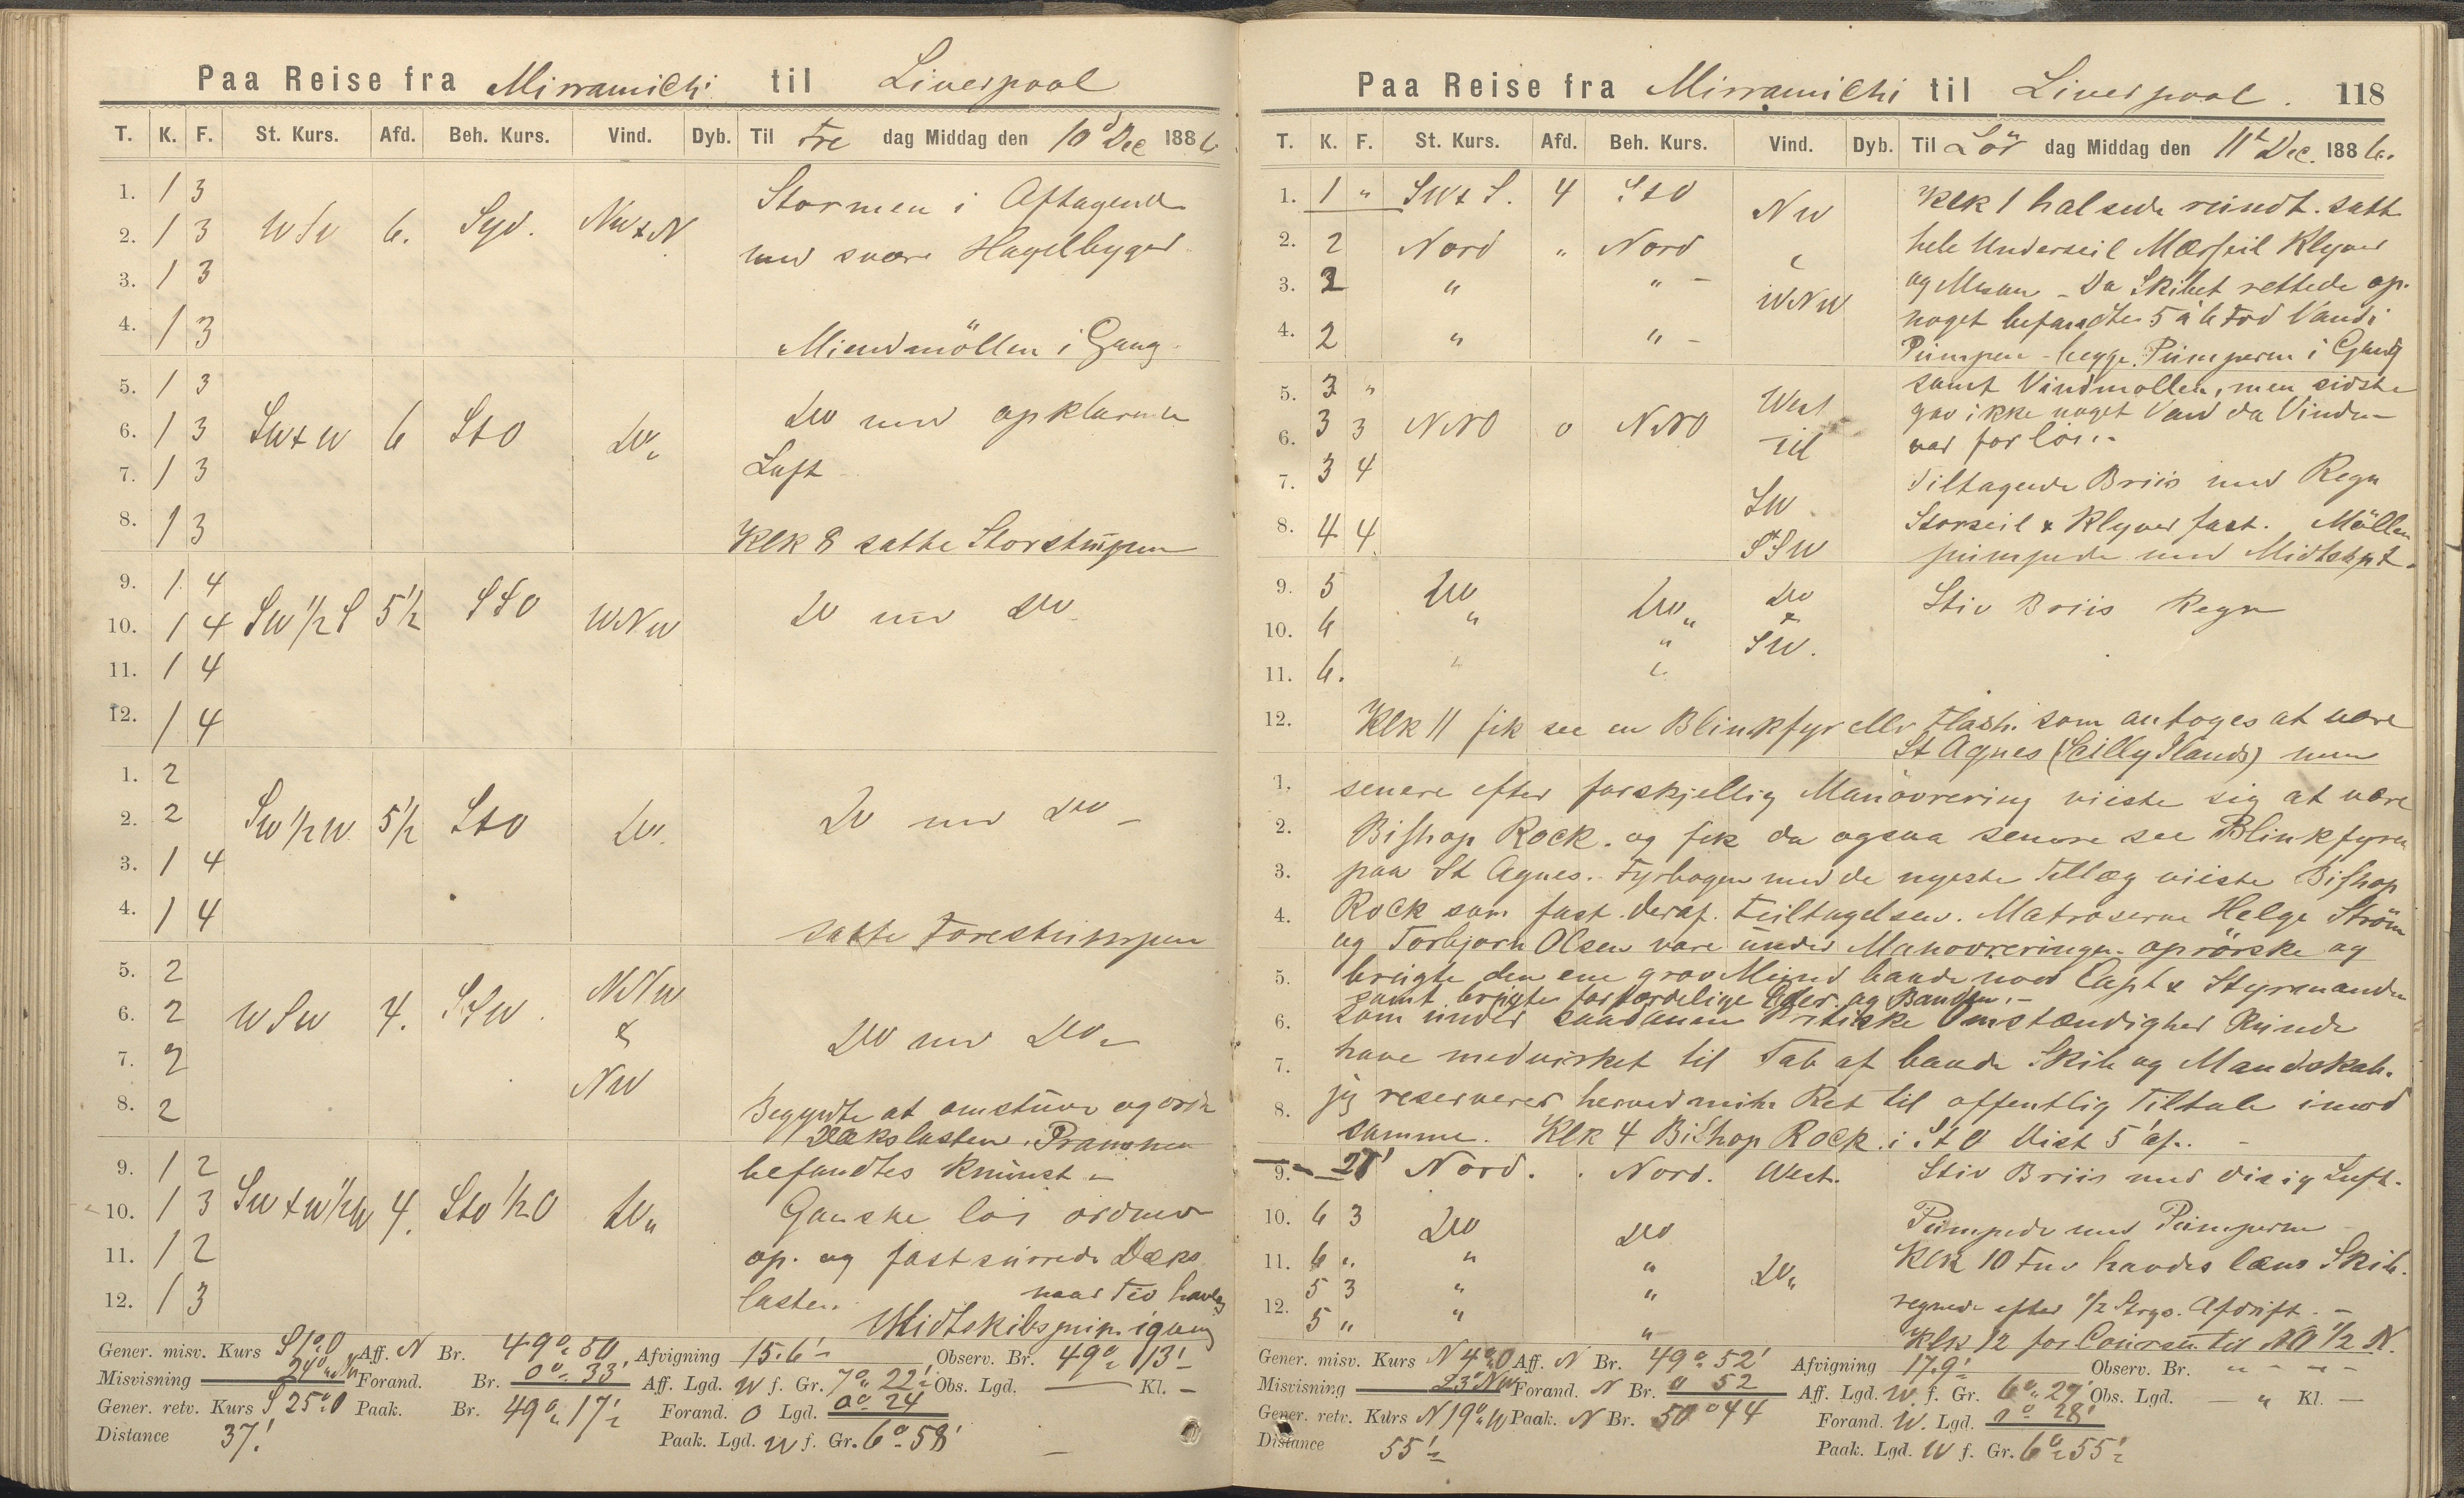 Paa Reise fra Mirramichi til Liverpool
T. K. F. St. Kurs. Afd. Beh. Kurs. Vind. Dyb. Til Fre dag Middag den 10d Dec 1886
1. 1 3 Stormen i Aftagende
2. 1 3 WSW 6. Syd. NWxN med svære Hagelbyger
3. 1 3
4. 1 3 Miendmöllen i Gang.
5. 1 3
6. 1 3 SWxW 6 StO Do. Do med opklarende
7. 1 3 Luft
8. 1 3 Klk 8 satte Storstumpen
9. 1 4
10. 1 4 SW 1/2 S 5 1/2 SSO WNW Do med Do
11. 1 4
12. 1 4
1. 2
2. 2 SW 1/2 W 5 1/2 StO Do. Do med Do –
3. 1 4
4. 1 4 satte Forestumpen
5. 2 NNW
6. 2 WSW 4. SSW. & Do med Do
7. 2 NW
8. 2 Begyndte at omstuve og ordne
Dækslasten. Prammen
9. 1 2 befandtes knuust
10. 1 3 SWxW 1/2 W 4. StO 1/2 O Do „ Ganske löi ordnede
11. 1 2 op. og fastsurrede Dæks
12. 1 3 lasten.
Midtskibspump. igang
Gener. misv. Kurs S 1° O Aff. N Br. 49° 50 Afvigning 15.6' Observ. Br. 49° 13'
Misvisning 24° NW Forand. Br. 0° 33' Aff. Lgd. W f. Gr. 7° 22' Obs. Lgd. — Kl. –
Gener. retv. Kurs S 25° O Paak. Br. 49° 17' Forand. O Lgd. 0° 24
Distance 37' Paak. Lgd. W f. Gr. 6° 58'
Paa Reise fra Mirramichi til Liverpool. 118
T. K. F. St. Kurs. Afd. Beh. Kurs. Vind. Dyb. Til Lör dag Middag den 11t Dec. 1886.
1. 1 „ SWxS. 4 StO NW Klk 1 halsede rundt. satte
2. 2 Nord „ Nord hele Underseil Mærsseil Klyver
3. 2 „ „ – WNW og Mesan – Da Skibet rettede op.
4. 2 „ „ – noget befandtes 5 à 6 Fod Vand i
Pumpen – begge Pumperne i Gang
5. 3 „ West samt Vindmollen, men sidste
6. 3 3 NNO o NNO til gav ikke noget Vand da Vinden
var for löi. –
7. 3 4 SW Tiltagende Briis med Regn
8. 4 4 SSW Storseil & Klyver fast. Möllen
pumpede med Midtskpt.
9. 5 Do Do „ Do Stiv Briis Regn
10. 6 „ „ & SW.
11. 6. „ „
12. Klk 11 fik see en Blinkfyr eller Flash. som antoges at være
St Agnes (Scilly Ilands) men
1. senere efter forskjellig Manövrering viiste sig at være
2. Bishop Rock. og fik da ogsaa senere see Blinkfyren
3. paa St Agnes. Fyrbogen med de nyeste Tillæg viiste Bishop
4. Rock som fast. deraf. Feiltagelsen. Matroserne Helge Ström
og Torbjorn Olsen vare under Manovreringen. oprörske og
5. brugte den ene grov Mund baade mod Capt & Styrmanden
samt brugte forfærdelige Eder og Banden. –
6. som under saadanne Kritiske Omstændigher Kunde
7. have medvirket til Tab af baade Skib og Mandskab.
8. jeg reserverer herved mit Ret til offentlig Tiltale imod
samme. Klk 4 Bishop Rock i StO Dist 5' af. –
9. 28' Nord. Nord. West. Stiv Briis med disig Luft.
10. 6 3 Do Do Pumpede med Pumperne
11. 6 „ „ „ Do „ Klk 10 Fm havdes læns Skib.
5 3 „ „ regnede efter 1/2 Stregs. Afdrift. –
12. 5 „ „ „ Klk 12 for Coursen til NO 1/2 N.
Gener. misv. Kurs N 4° O Aff. N Br. 49° 52' Afvigning 17.9' Observ. Br. „ – – –
Misvisning 23° NW Forand. N Br. 0 52 Aff. Lgd. W. f. Gr. 6° 27' Obs. Lgd. — „ Kl. —
Gener. retv. Kurs N 19° W Paak. N Br. 50° 44 Forand. W. Lgd. 0° 28'
Distance 55' Paak. Lgd. W f. Gr. 6° 55'